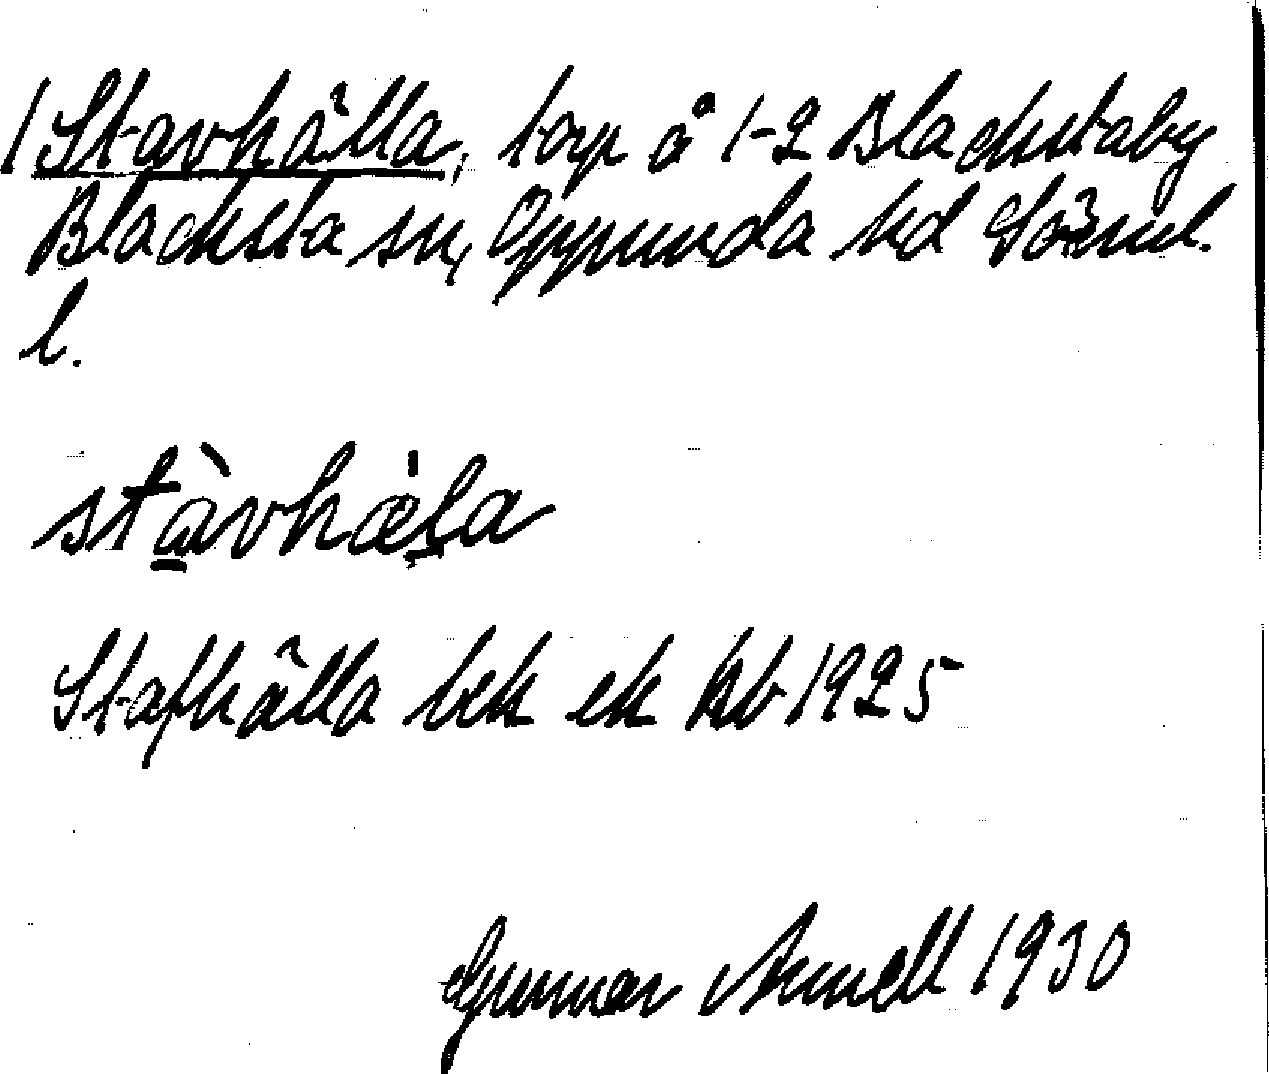 / Stavhälla, torp å 1-2 Blackstaby
Blacksta sn, Oppunda hd Söml.
l.
stàvhæ̀la
Stafhälla bek ek kb 1925
Gunnar Arnell 1930